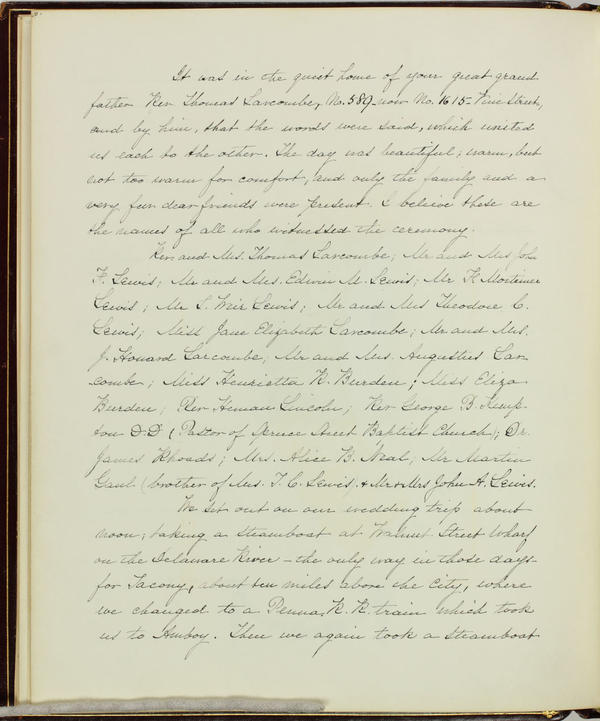 It was in the quiet home of your great grand
father Rev Thomas Larcombe, No. 589 - now No. 1615 - Vine Street,
and by him, that the words were said, which united
us each to the other. The day was beautiful; warm, but
not too warm for comfort, and only the family and a
very few dear friends were present. I believe these are
the names of all who witnessed the ceremony.
Rev. and Mrs. Thomas Larcombe; Mr and Mrs John
F. Lewis; Mr and Mrs. Edwin M. Lewis; Mr F. Mortimer
Lewis; Mr S. Weir Lewis; Mr and Mrs Theodore C.
Lewis; Miss Jane Elizabeth Larcombe; Mr and Mrs.
J. Howard Larcombe; Mr and Mrs. Augustus Lar-
combe; Miss Henrietta R. Burden; Miss Eliza
Burden; Rev Heman Lincoln; Rev George B. Kemp-
ton D.D (Pastor of Spruce Street Baptist Church); Dr.
James Rhoads; Mrs. Alice B. Neal; Mr Martin
Gaul (brother of Mrs. T. C. Lewis) & Mr & Mrs John A. Lewis.
We set out on our wedding trip about
noon; taking a steamboat at Walnut Street Wharf
on the Delaware River - the only way in those days -
for Tacony, about ten miles above the City, where
we changed to a Penna. R. R. train which took
us to Amboy. Then we again took a steamboat